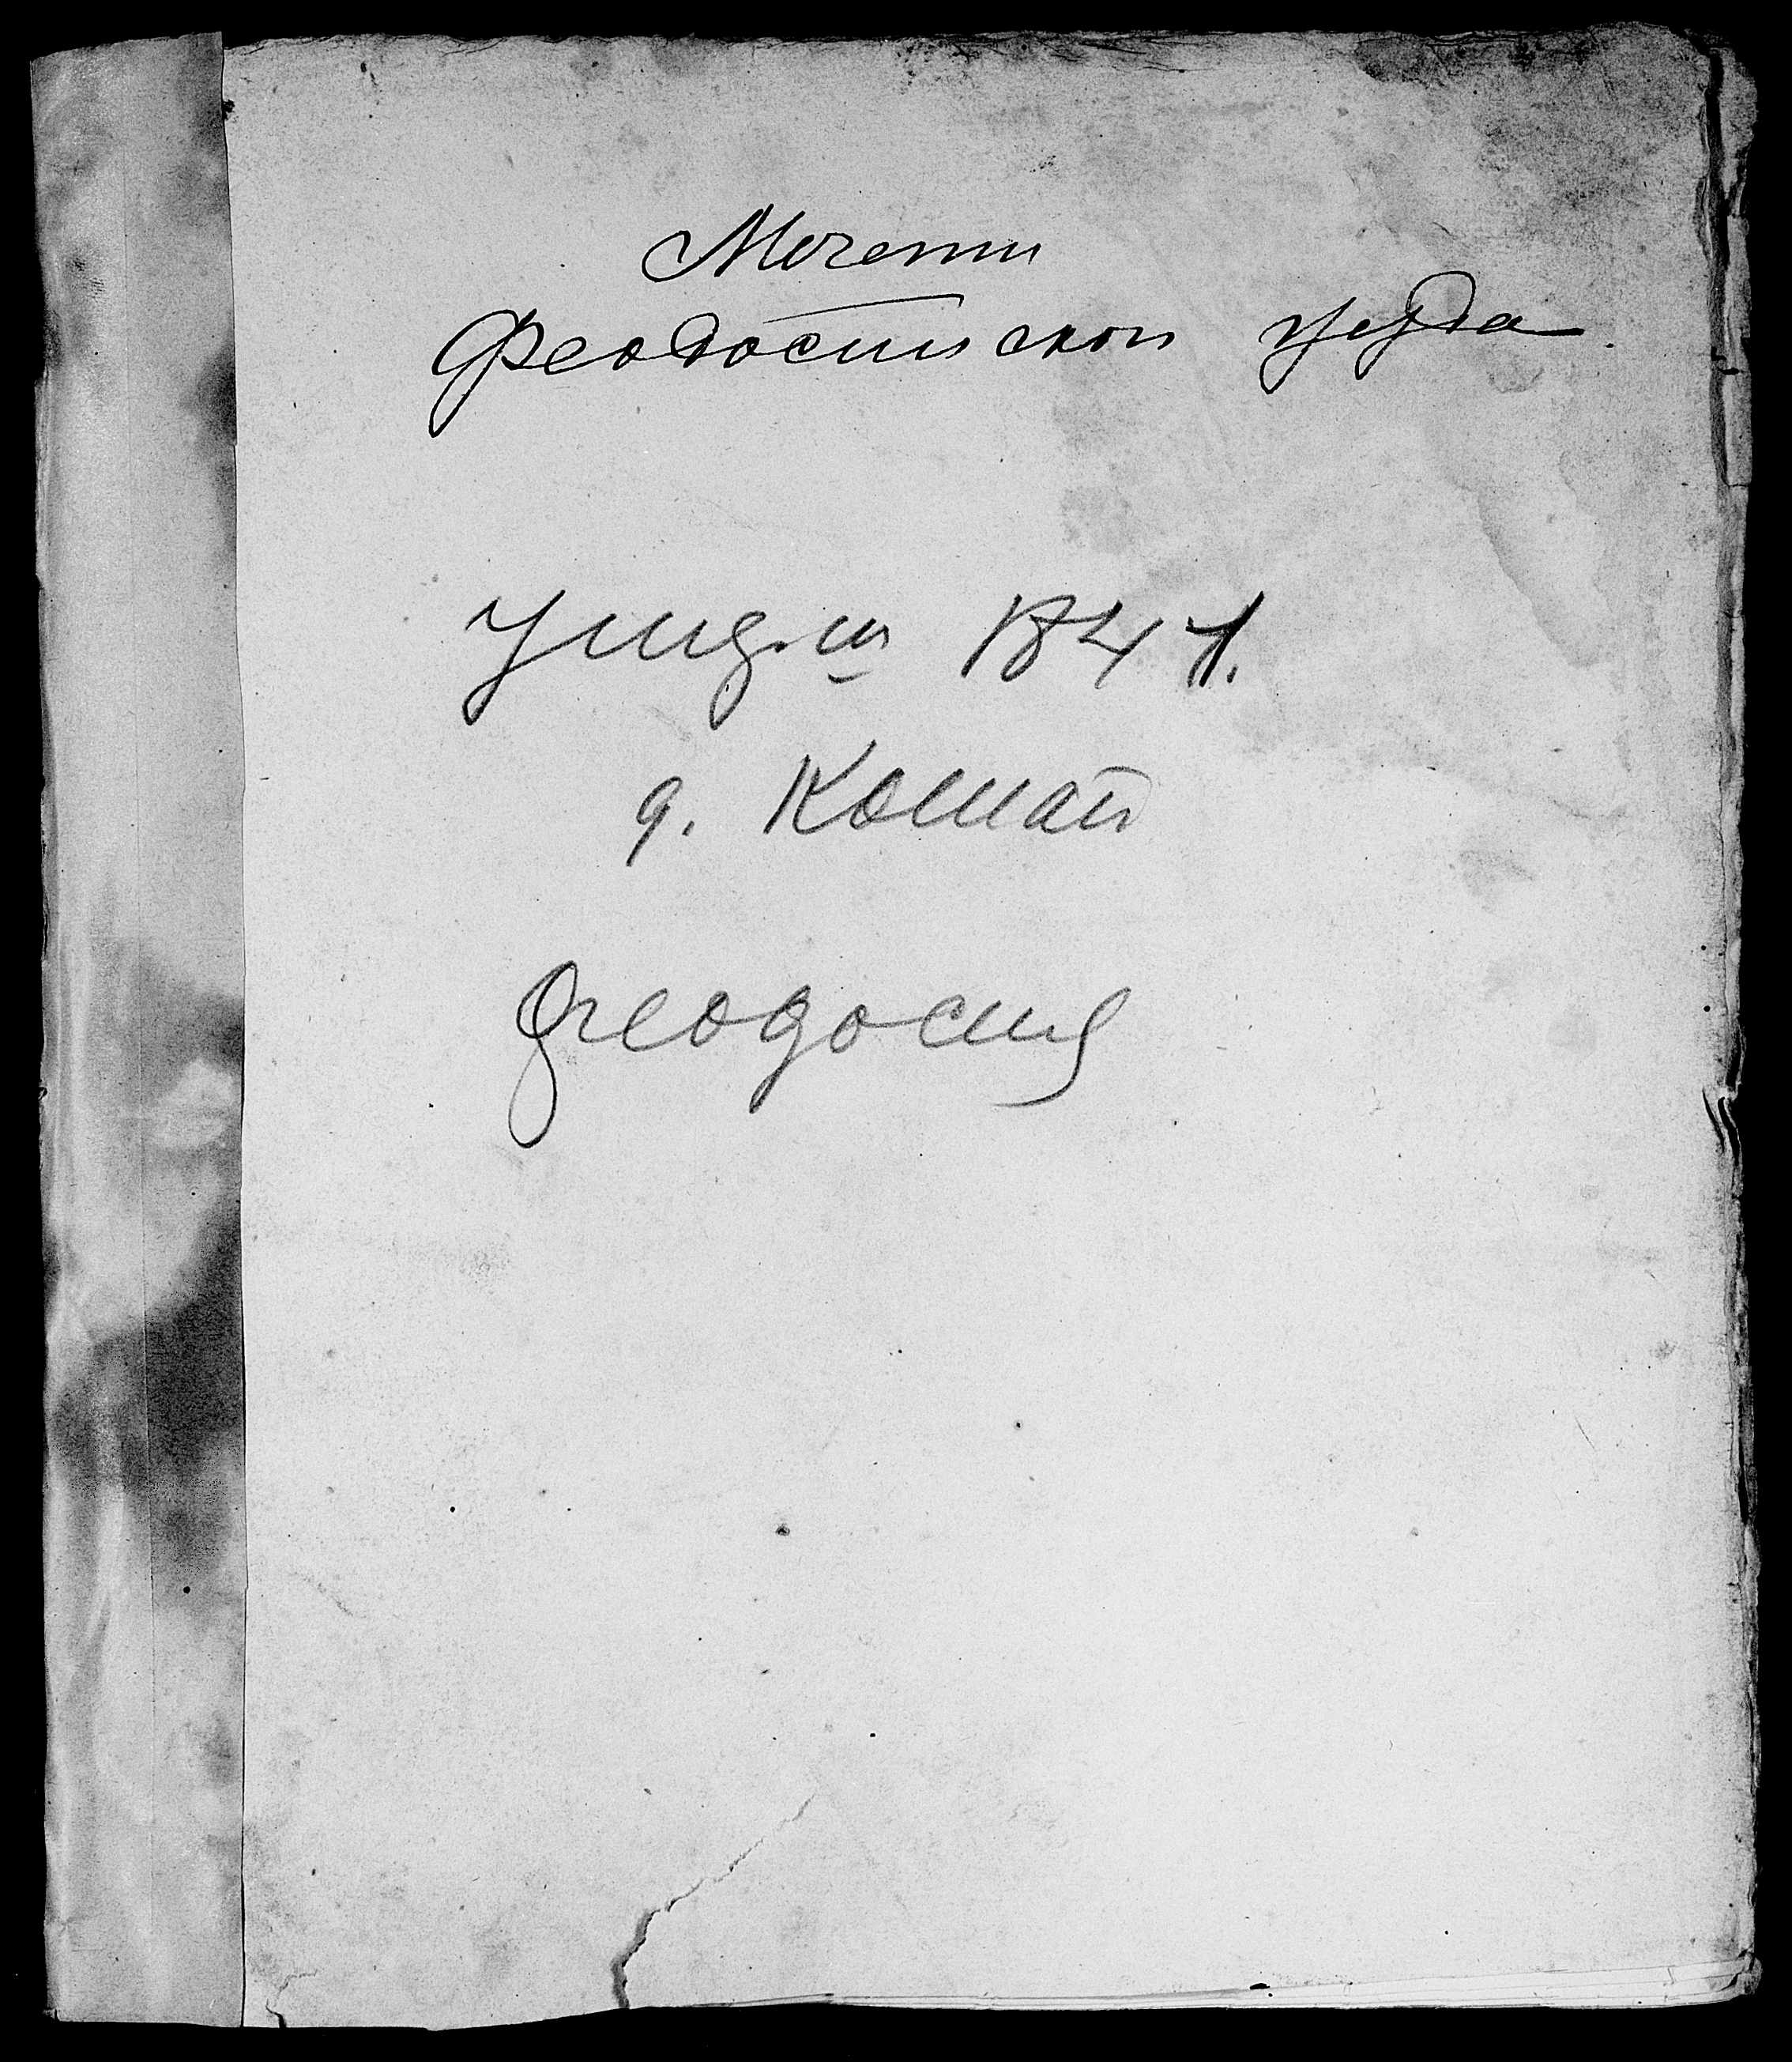 Мечети
Феодосийской уезда
Умерш 1841.
д. Кошай
Феодосия